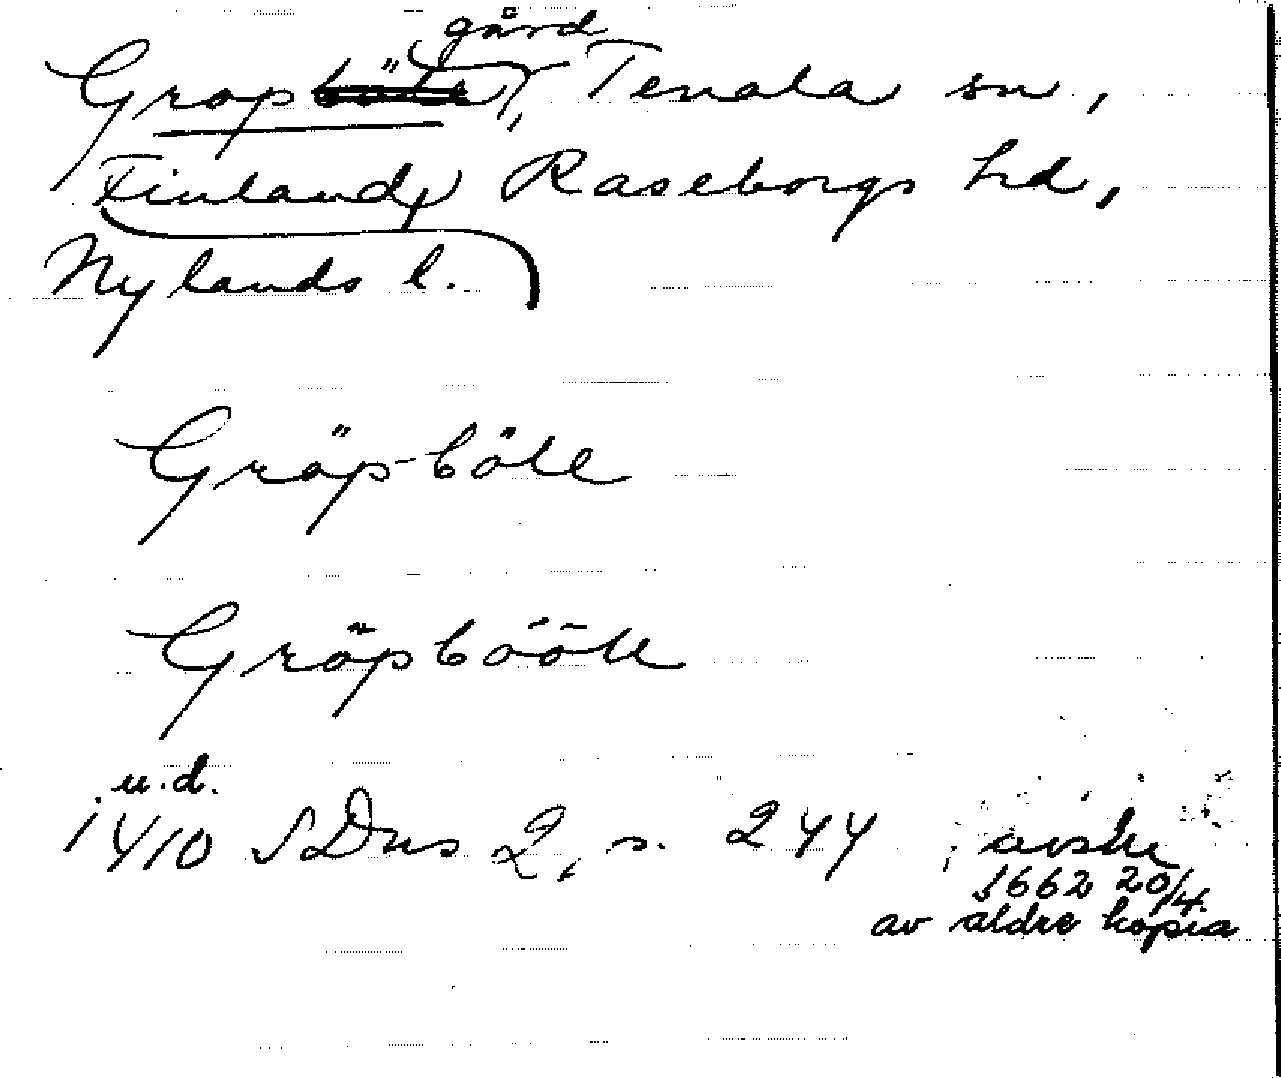 gård
Grop, Tenala sn,
Finland, Raseborgs hd,
Nylands l.
Gräp-böle
Gräpbööle
u.d.
1410 SDns 2, s. 244; avskr
1662 20/4.
av äldre kopia